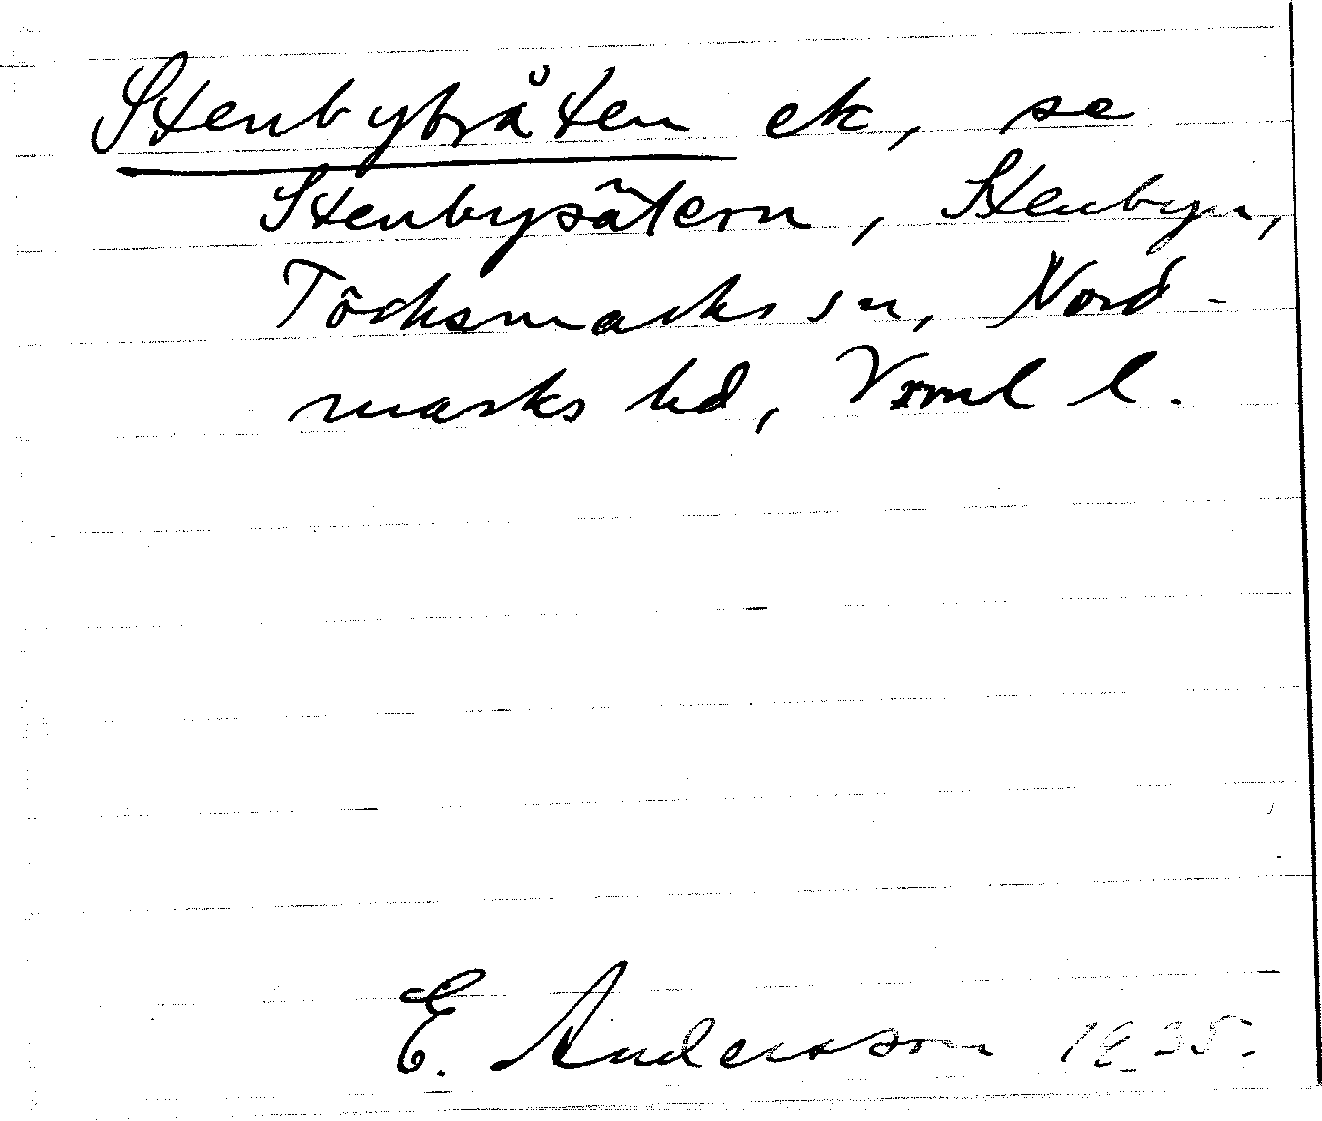 Stenbybråten ek, se
Stenbysätern, Stenbyn,
Töcksmarks sn, Nord-
marks hd, Vrml l.
E. Andersson 1935.